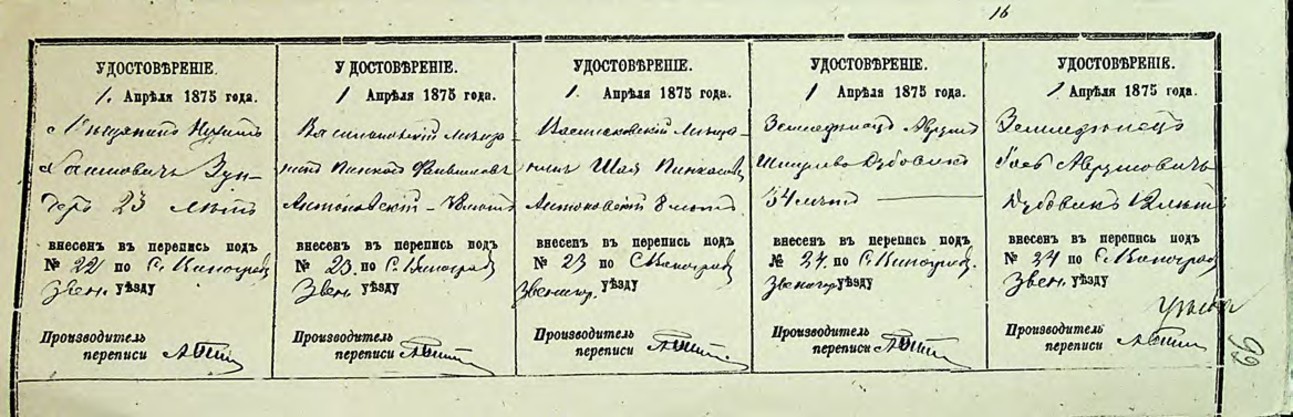 16
УДОСТОВѢРЕНІЕ.
1. Апрѣля 1875 года.
Мѣщанинъ
Зун-
23 лѣтъ
внесенъ въ перепись подъ
№ 22 по С. Виноградъ
Звен. уѣзду
Производитель
переписи
УДОСТОВѢРЕНІЕ.
1 Апрѣля 1875 года.
Васильковскій мѣща-
нинъ Пинхасъ
Антоновскій - лѣтъ
внесенъ въ перепись подъ
№ 23. по С. Виноградъ
Звен. уѣзду
Производитель
переписи
УДОСТОВѢРЕНІЕ.
1 Апрѣля 1875 года.
Васильковскій мѣща-
нинъ Шая Пинхасовъ
Антоновскій 8 лѣтъ
внесенъ въ перепись подъ
№ 23 по С. Виноградъ
Звенигор. уѣзду
Производитель
переписи
УДОСТОВѢРЕНІЕ.
1 Апрѣля 1875 года.
Земледѣлецъ Аврумъ
Шмулево Дубовикъ
54 лѣтъ
внесенъ въ перепись подъ
№ 24. по С. Виноград.
Звенигор уѣзду
Производитель
переписи
УДОСТОВѢРЕНІЕ.
1 Апрѣля 1875 года.
Земледѣлецъ
Аврумовичъ
Дубовикъ лѣтъ
внесенъ въ перепись подъ
№ 24 по С. Виноградъ
Звен. уѣзду
Производитель
переписи